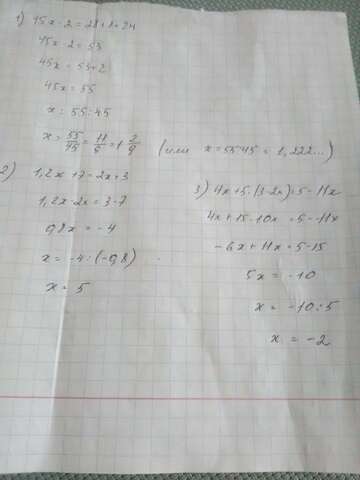 1) 45x - 2 = 28+1+24
45x - 2 = 53
45x = 53+2
45x = 55
x = 55:45
x = 55/45 = 11/9 = 1 2/9 (или x = 55:45 = 1,222...)
2) 1,2x + 7 = 2x + 3
1,2x - 2x = 3-7
0,8x = -4
x = -4 : (-0,8)
x = 5
3) 4x+5.(3-2x)=5-11x
4x+15-10x = 5-11x
-6x + 11x = 5-15
5x = -10
x = -10:5
x = -2